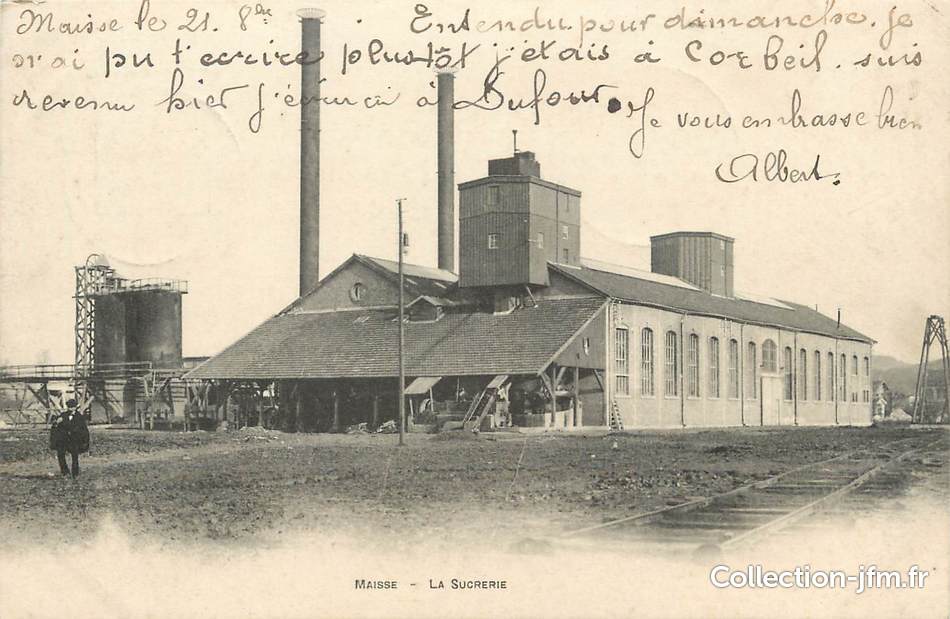 Maisse le 21. 8bre Entendu pour dimanche. je
n'ai pu t'ecrire plustôt j'etais à Corbeil. suis
revenu hier J'écrirai à Dufour. Je vous embrasse bien
Albert.
MAISSE - LA SUCRERIE
Collection-jfm.fr